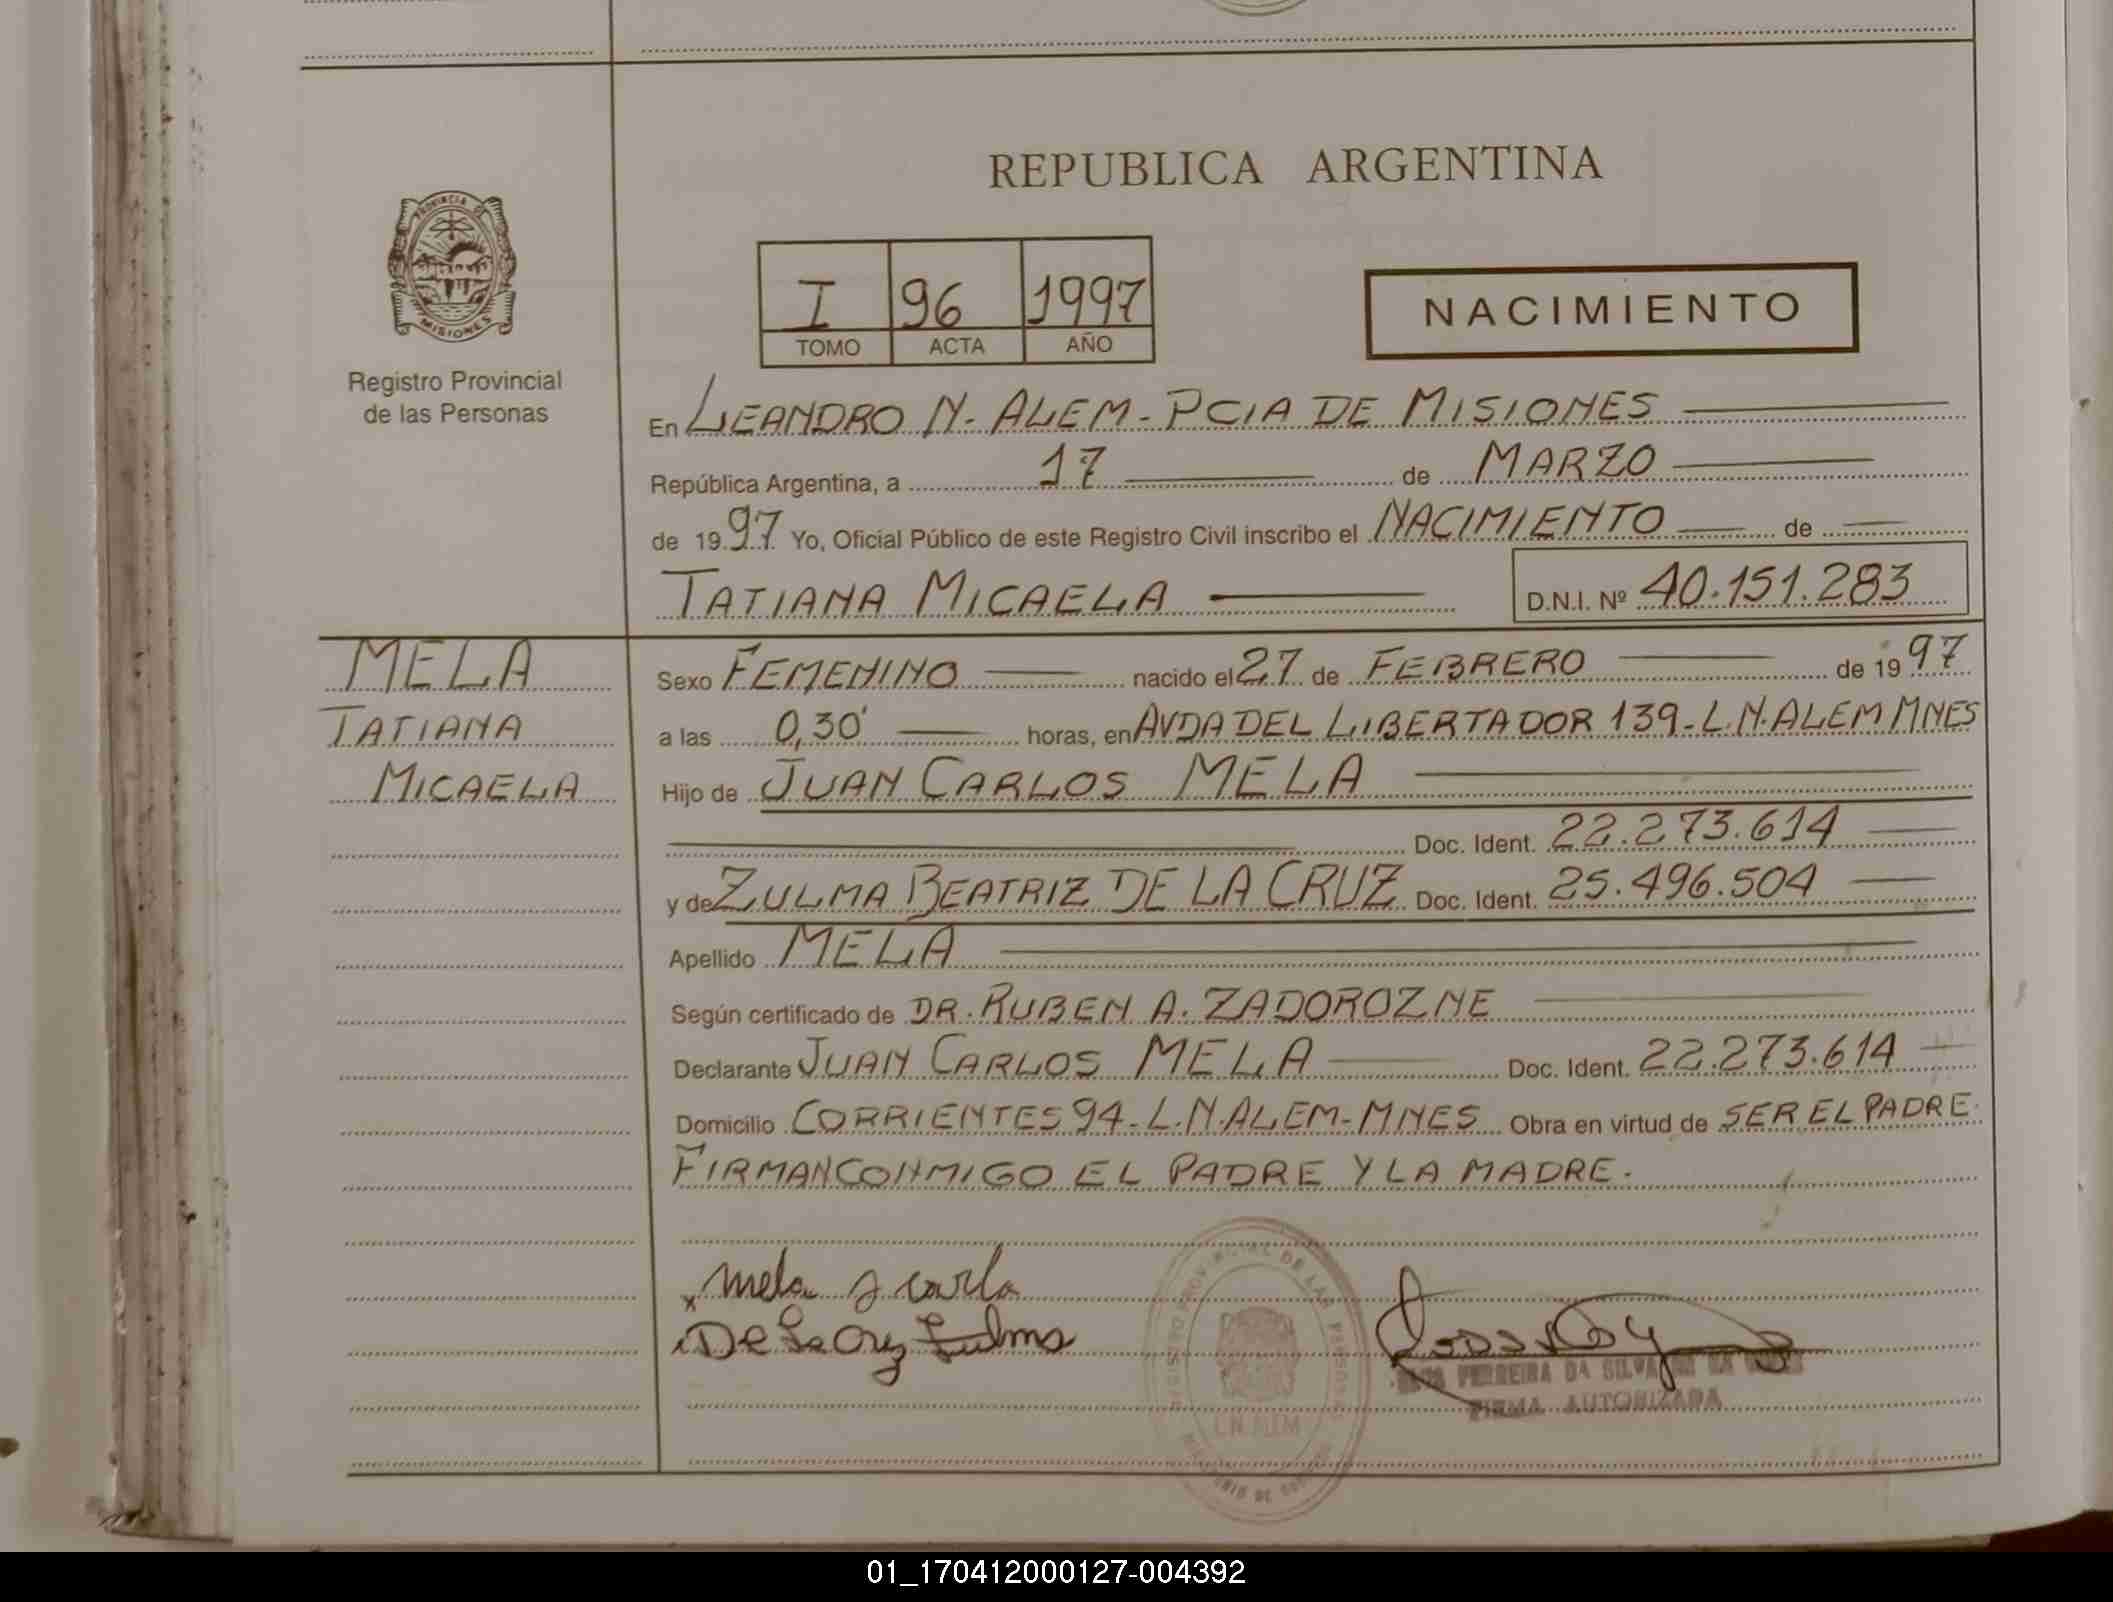 REPUBLICA ARGENTINA
PROVINCIA DE
MISIONES
Registro Provincial
de las Personas
I 96 1997
TOMO ACTA AÑO
NACIMIENTO
En LEANDRO N. ALEM - PCIA DE MISIONES
República Argentina, a 17 de MARZO
de 1997 Yo, Oficial Público de este Registro Civil inscribo el NACIMIENTO de
TATIANA MICAELA D.N.I. Nº 40.151.283
MELA
TATIANA
MICAELA
Sexo FEMENINO nacido el 27 de FEBRERO de 1997
a las 0,30' horas, en AVDA DEL LIBERTADOR 139 - L.N.ALEM MNES
Hijo de JUAN CARLOS MELA
Doc. Ident. 22.273.614
y de ZULMA BEATRIZ DE LA CRUZ Doc. Ident. 25.496.504
Apellido MELA
Según certificado de DR. RUBEN A. ZADOROZNE
Declarante JUAN CARLOS MELA Doc. Ident. 22.273.614
Domicilio CORRIENTES 94 - L.N.ALEM - MNES Obra en virtud de SER EL PADRE.
FIRMAN CONMIGO EL PADRE Y LA MADRE.
x Mela J carlo
De La Cruz Zulma
REGISTRO PROVINCIAL DE LAS PERSONAS
L.N. ALEM
MINISTERIO DE GOBIERNO
FERREIRA DA SILVA
FIRMA AUTORIZADA
01_170412000127-004392